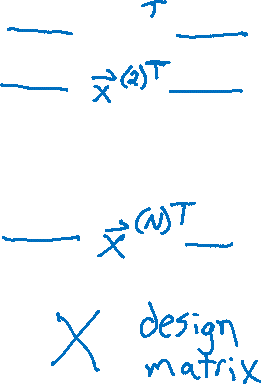 T
— x⃗^(2)T —
— x⃗^(N)T —
X design
matrix